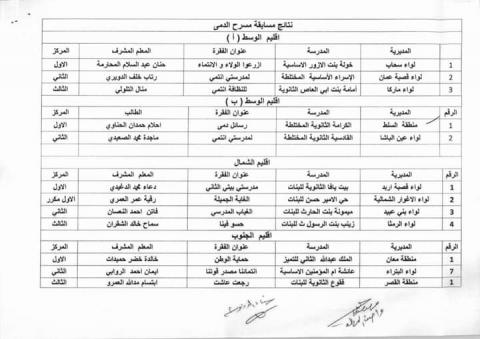 نتائج مسابقة مسرح الدمى
اقليم الوسط ( أ )
المديرية المدرسة عنوان الفقرة المعلم المشرف المركز
1 لواء سحاب خولة بنت الازور الاساسية ازرعوا الولاء و الانتماء حنان عبد السلام المحارمة الاول
2 لواء قصبة عمان الإسراء الأساسية المختلطة لمدرستي انتمي رناب خلف الدويري الثاني
3 لواء ماركا أمامة بنت ابي العاص الثانوية للنظافة انتمي منال التلولي الثالث
اقليم الوسط ( ب )
الرقم المديرية المدرسة عنوان الفقرة الطالب المركز
1 منطقة السلط الكرامة الثانوية المختلطة رسائل دمى احلام حمدان الحناوي الاول
2 لواء عين الباشا القادسية الثانوية المختلطة لمدرستي انتمي ماجدة محمد الصعيدي الثاني
اقليم الشمال
الرقم المديرية المدرسة عنوان الفقرة المعلم المشرف المركز
1 لواء قصبة اربد بيت يافا الثانوية للبنات مدرستي بيتي الثاني دعاء محمد الدغيدي الاول
2 لواء الاغوار الشمالية حي الامير حسن للبنات الغابة الجميلة رقية عمر العمري الاول مكرر
3 لواء بني عبيد ميمونة بنت الحارث للبنات الغياب المدرسي فاتن احمد النعسان الثاني
4 لواء الرمثا زينب بنت الرسول ث للبنات حسو فينا سماح خالد الشقران الثالث
اقليم الجنوب
الرقم المديرية المدرسة عنوان الفقرة المعلم المشرف المركز
1 منطقة معان الملك عبدالله الثاني للتميز حماية الوطن خالدة خضر حميدات الاول
7 لواء البتراء عائشة ام المؤمنين الاساسية انتمائنا مصدر قوتنا ايمان احمد الروابي الثاني
1 منطقة القصر فقوع الثانوية للبنات رجعت عاشت ابتسام مدالله العمرو الثالث